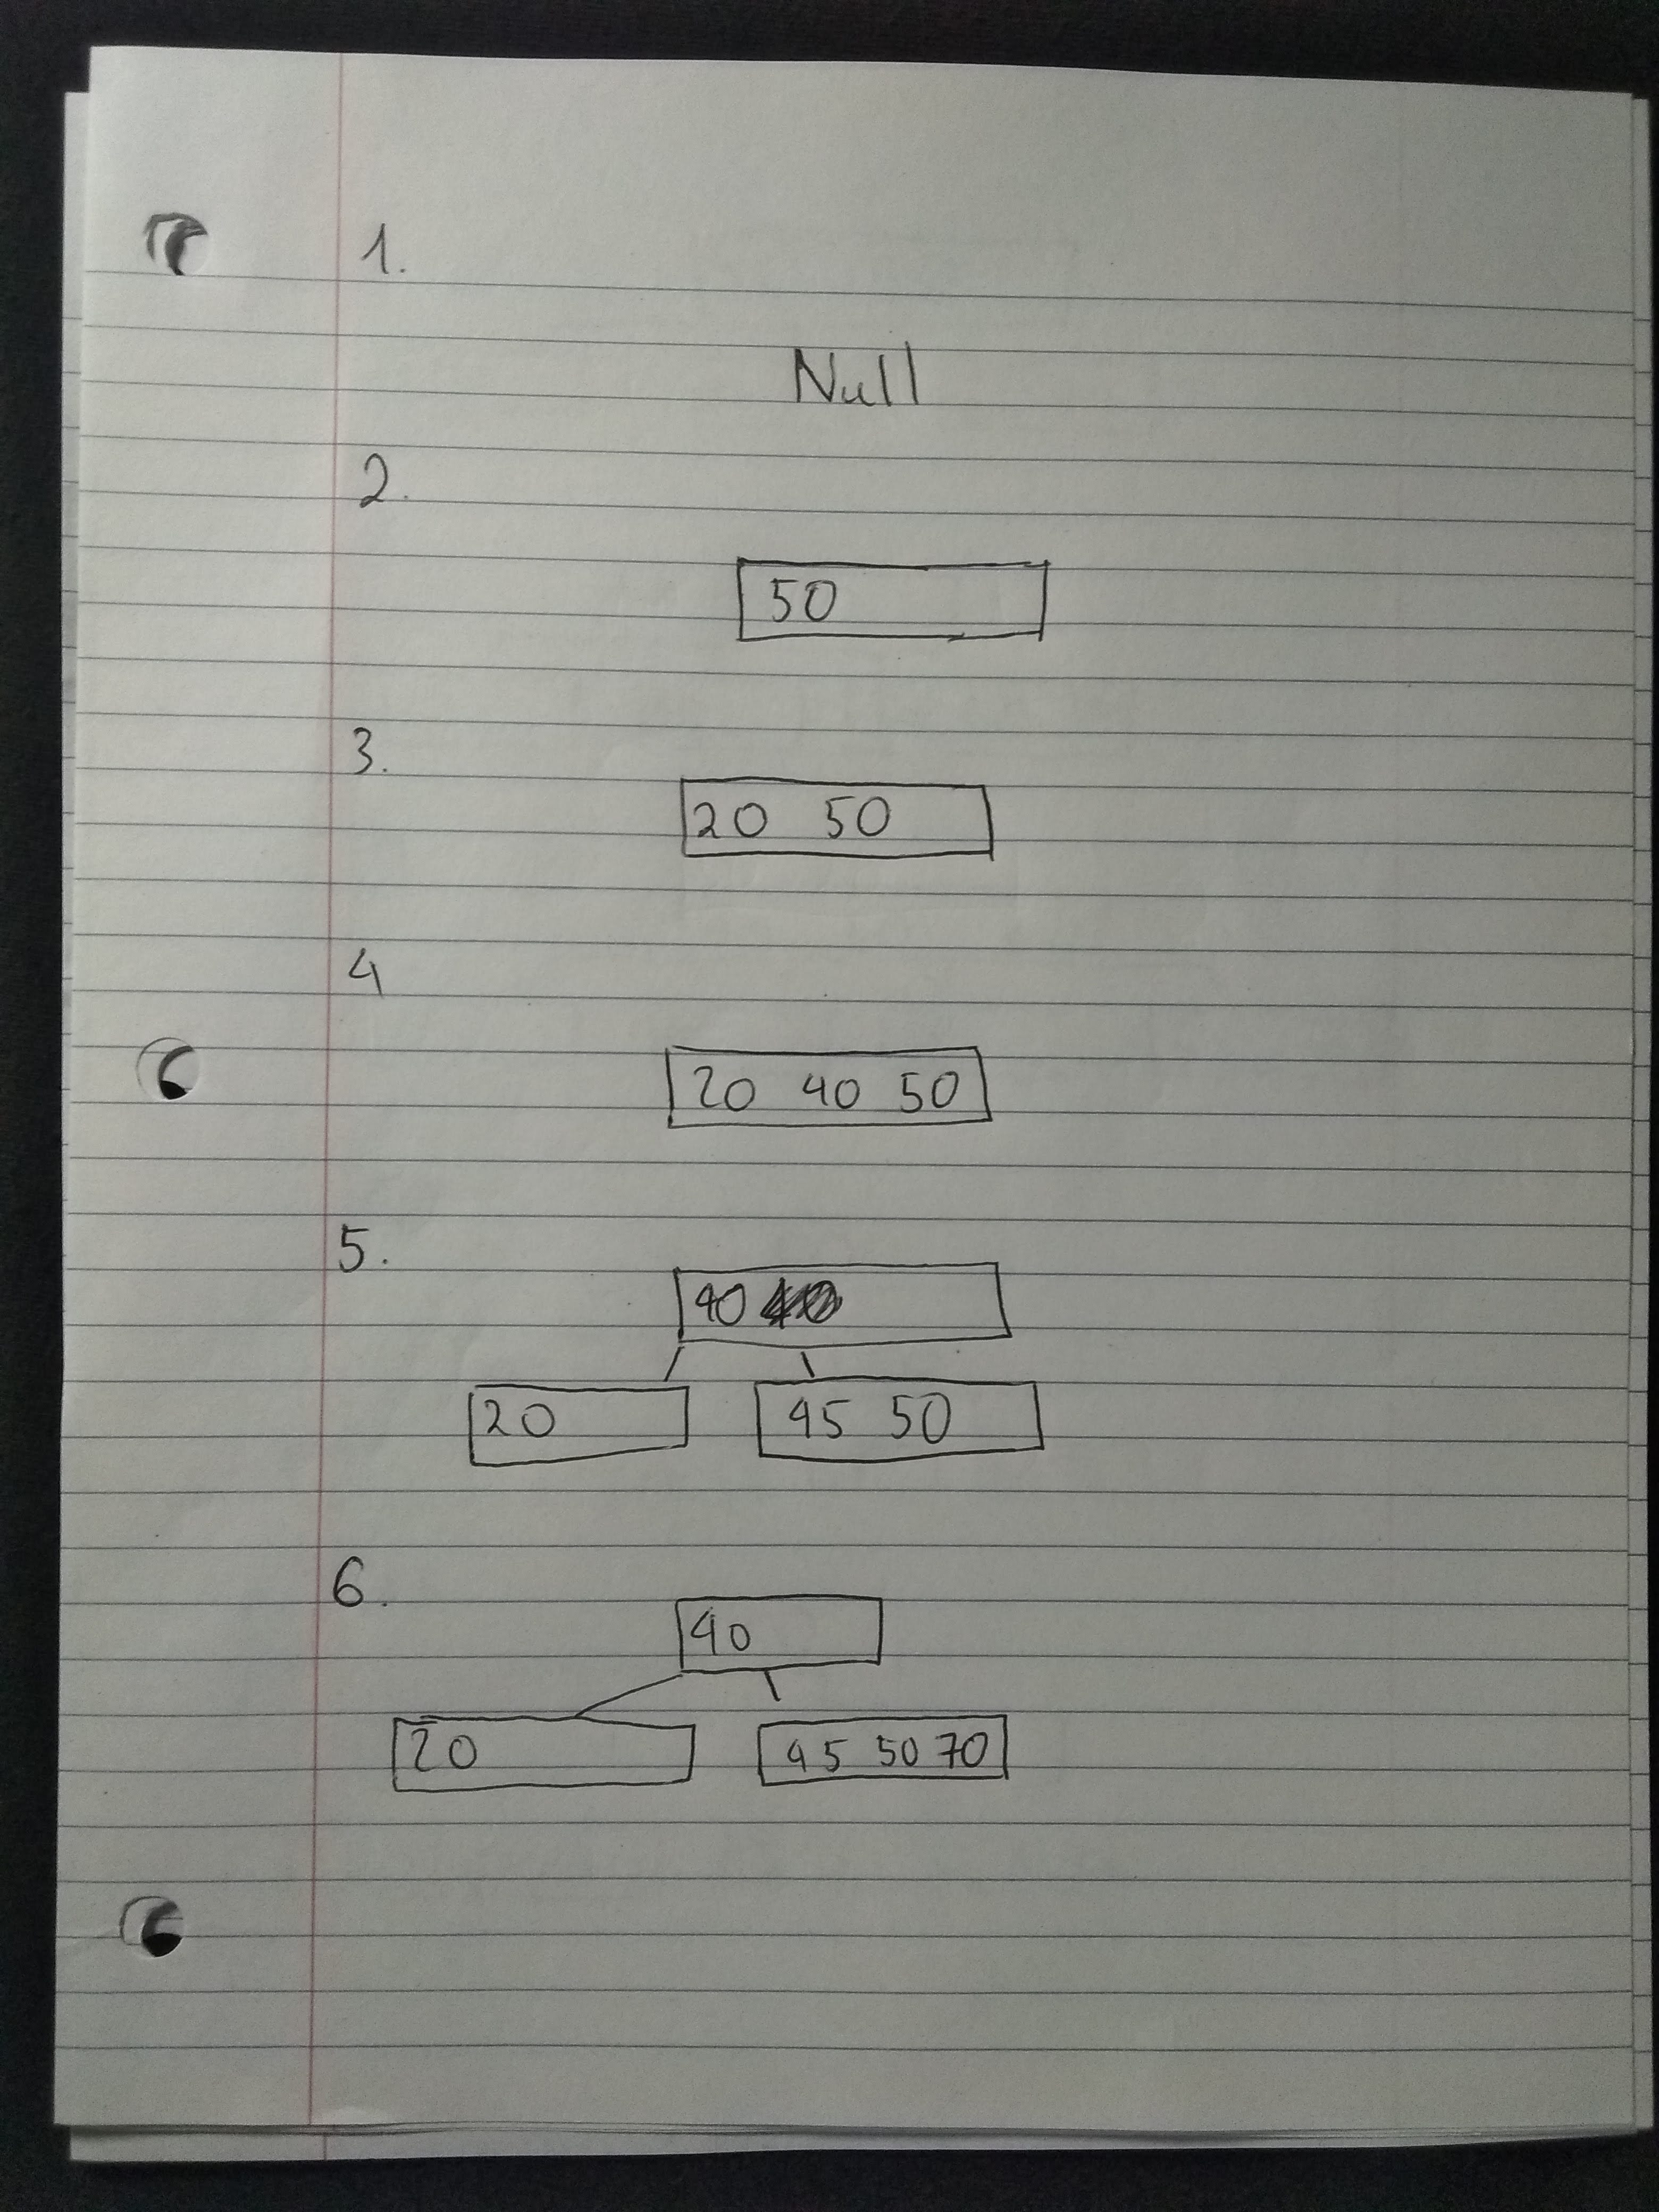 1.
Null
2.
50
3.
20 50
4
20 40 50
5.
40
20 45 50
6.
40
20 45 50 70